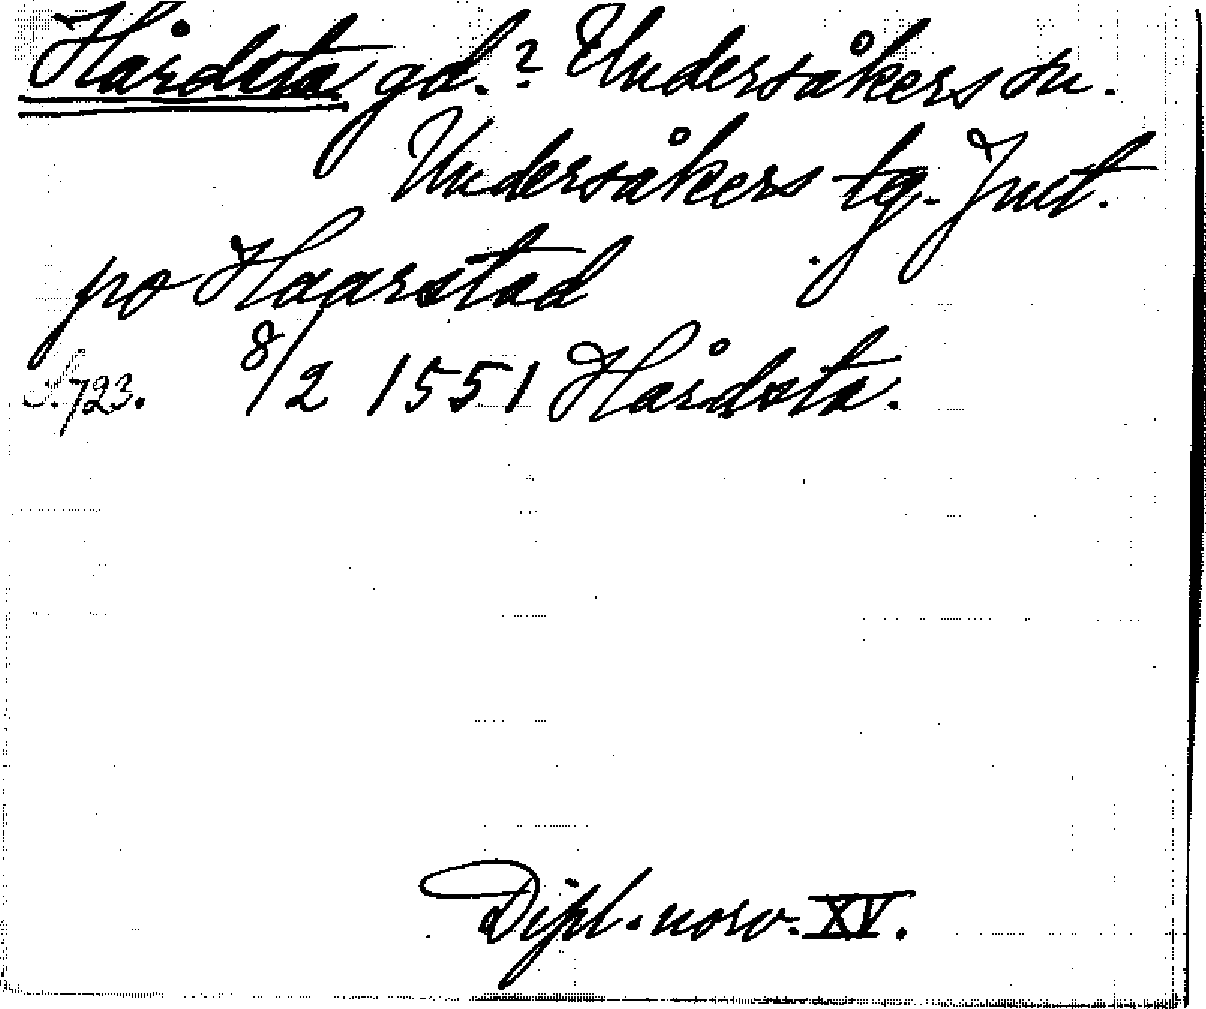 Hårdsta gd.? Undersåkers sn.
Undersåkers tg. Jmtl.
po Haarstad
S. 723. 8/2 1551 Hårdsta.
Dipl. norv. XV.